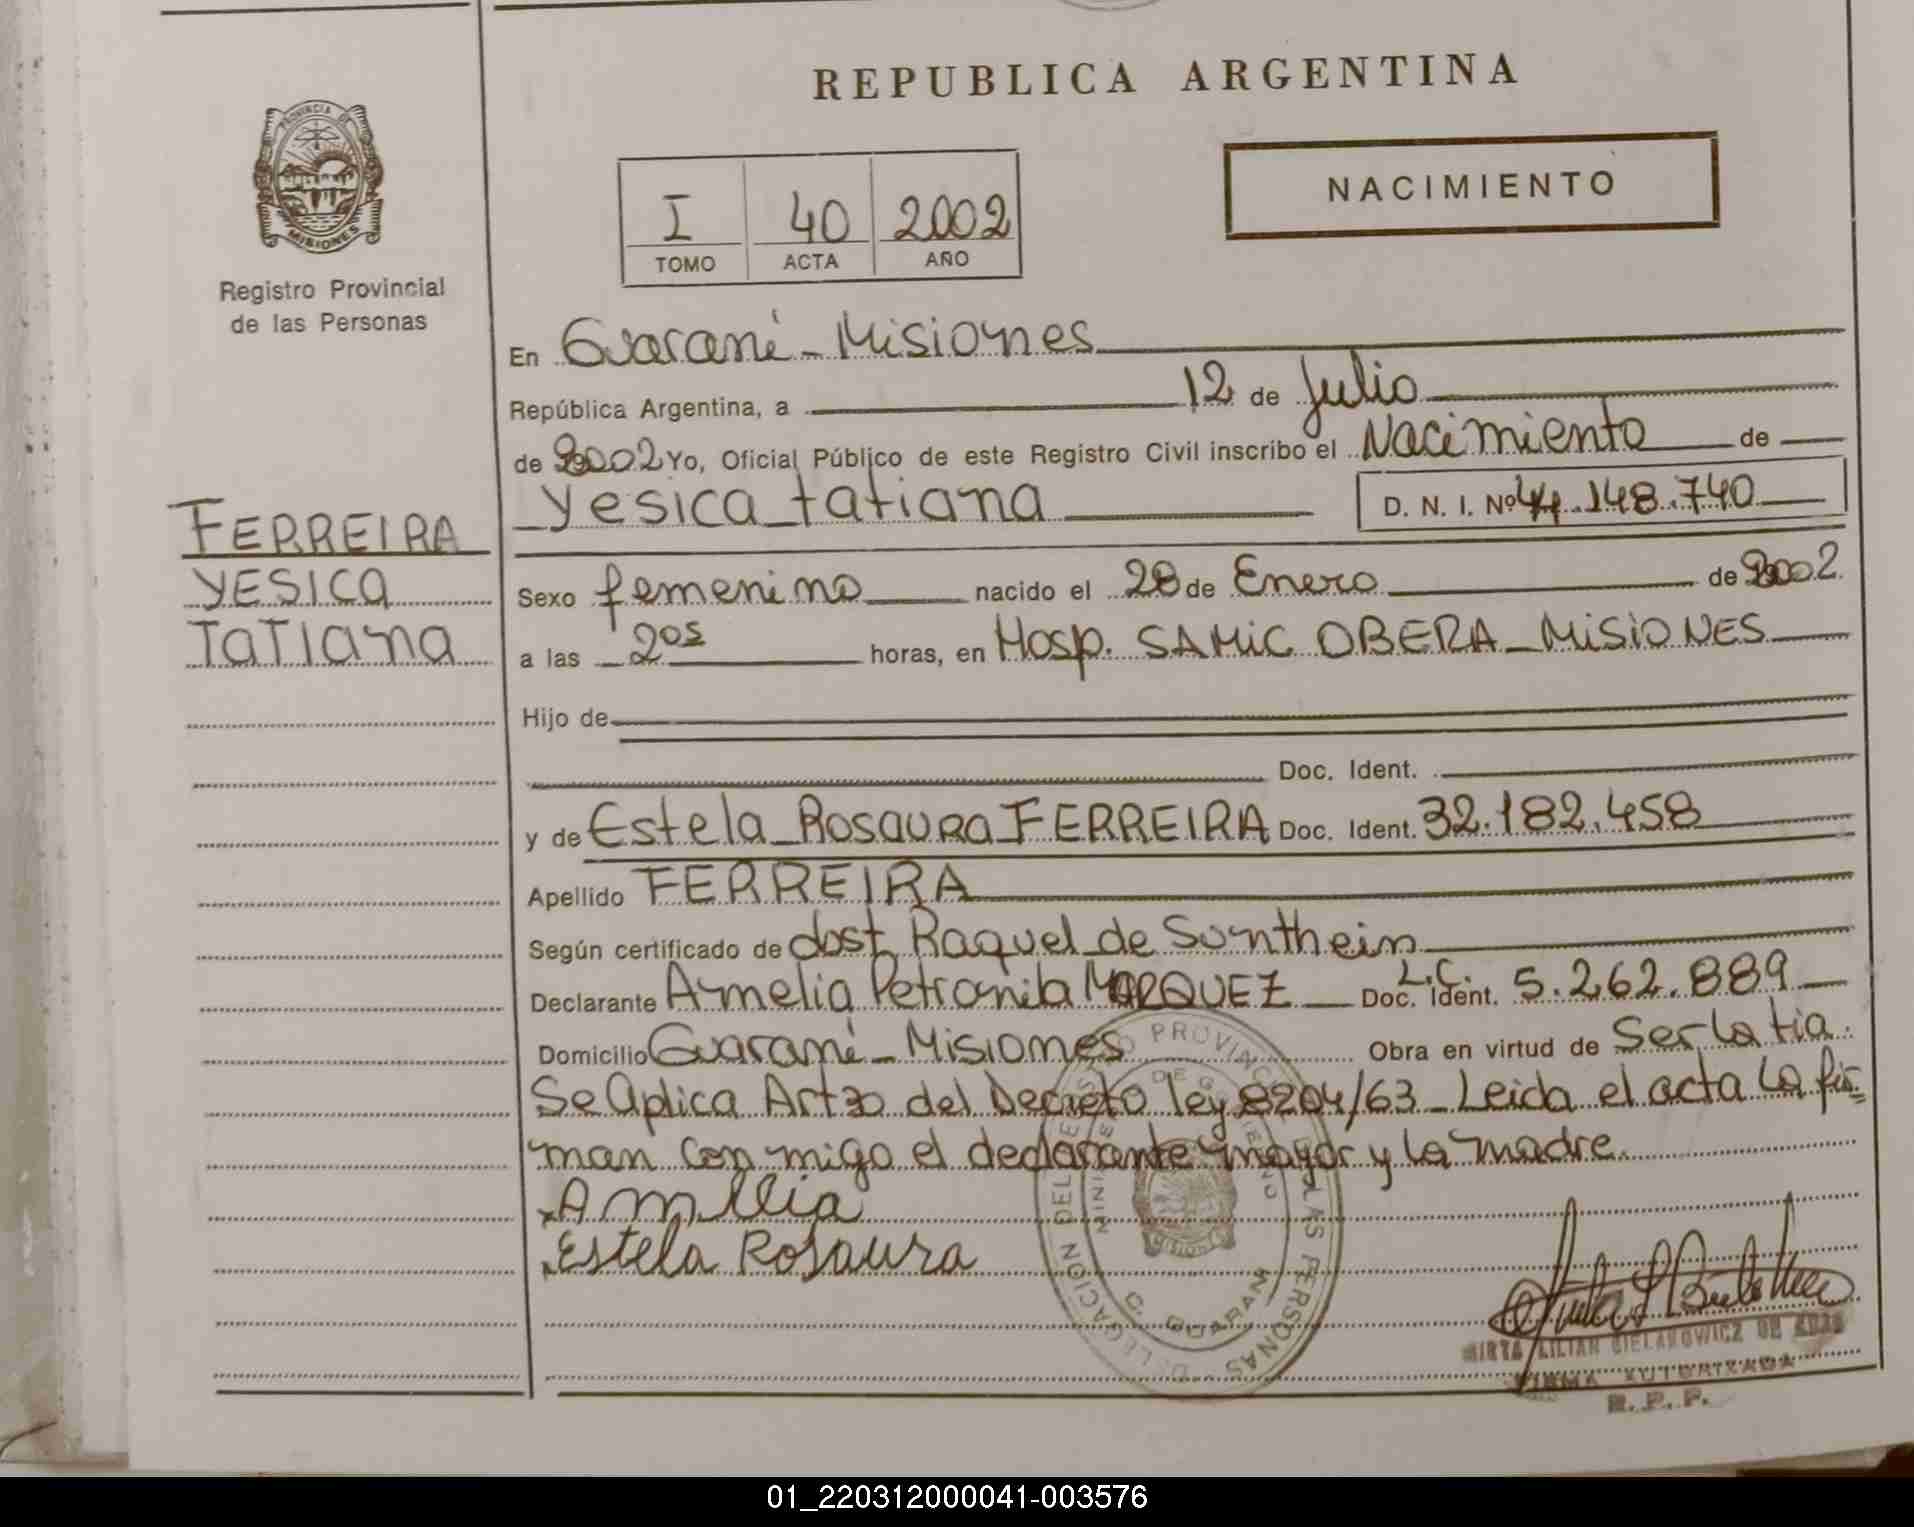 REPUBLICA ARGENTINA
PROVINCIA DE
MISIONES
Registro Provincial
de las Personas
NACIMIENTO
I 40 2002
TOMO ACTA AÑO
En Guaraní - Misiones
República Argentina, a 12 de Julio
de 2002 Yo, Oficial Público de este Registro Civil inscribo el Nacimiento de
Yesica tatiana D. N. I. Nº 44.148.740
FERREIRA
YESICA
TaTiana
Sexo femenino nacido el 28 de Enero de 2002
a las 2os horas, en Hosp. SAMIC OBERA - MISIONES
Hijo de
Doc. Ident.
y de Estela Rosaura FERREIRA Doc. Ident. 32.182.458
Apellido FERREIRA
Según certificado de obst. Raquel de Sonthein
Declarante Amelia Petronila MARQUEZ Doc. Ident. L.C. 5.262.889
Domicilio Guaraní - Misiones Obra en virtud de Ser la tia
Se aplica Art 30 del Decreto ley 8204/63 - Leida el acta la fir=
man con migo el declarante mayor y la madre.
x Amelia
x Estela Rosaura
DELEGACION DEL REGISTRO PROVINCIAL DE LAS PERSONAS
MINISTERIO DE GOBIERNO
MISIONES
C. GUARANI
MIRTA LILIAN BIELAKOWICZ DE
FIRMA AUTORIZADA
R. P. P.
01_220312000041-003576